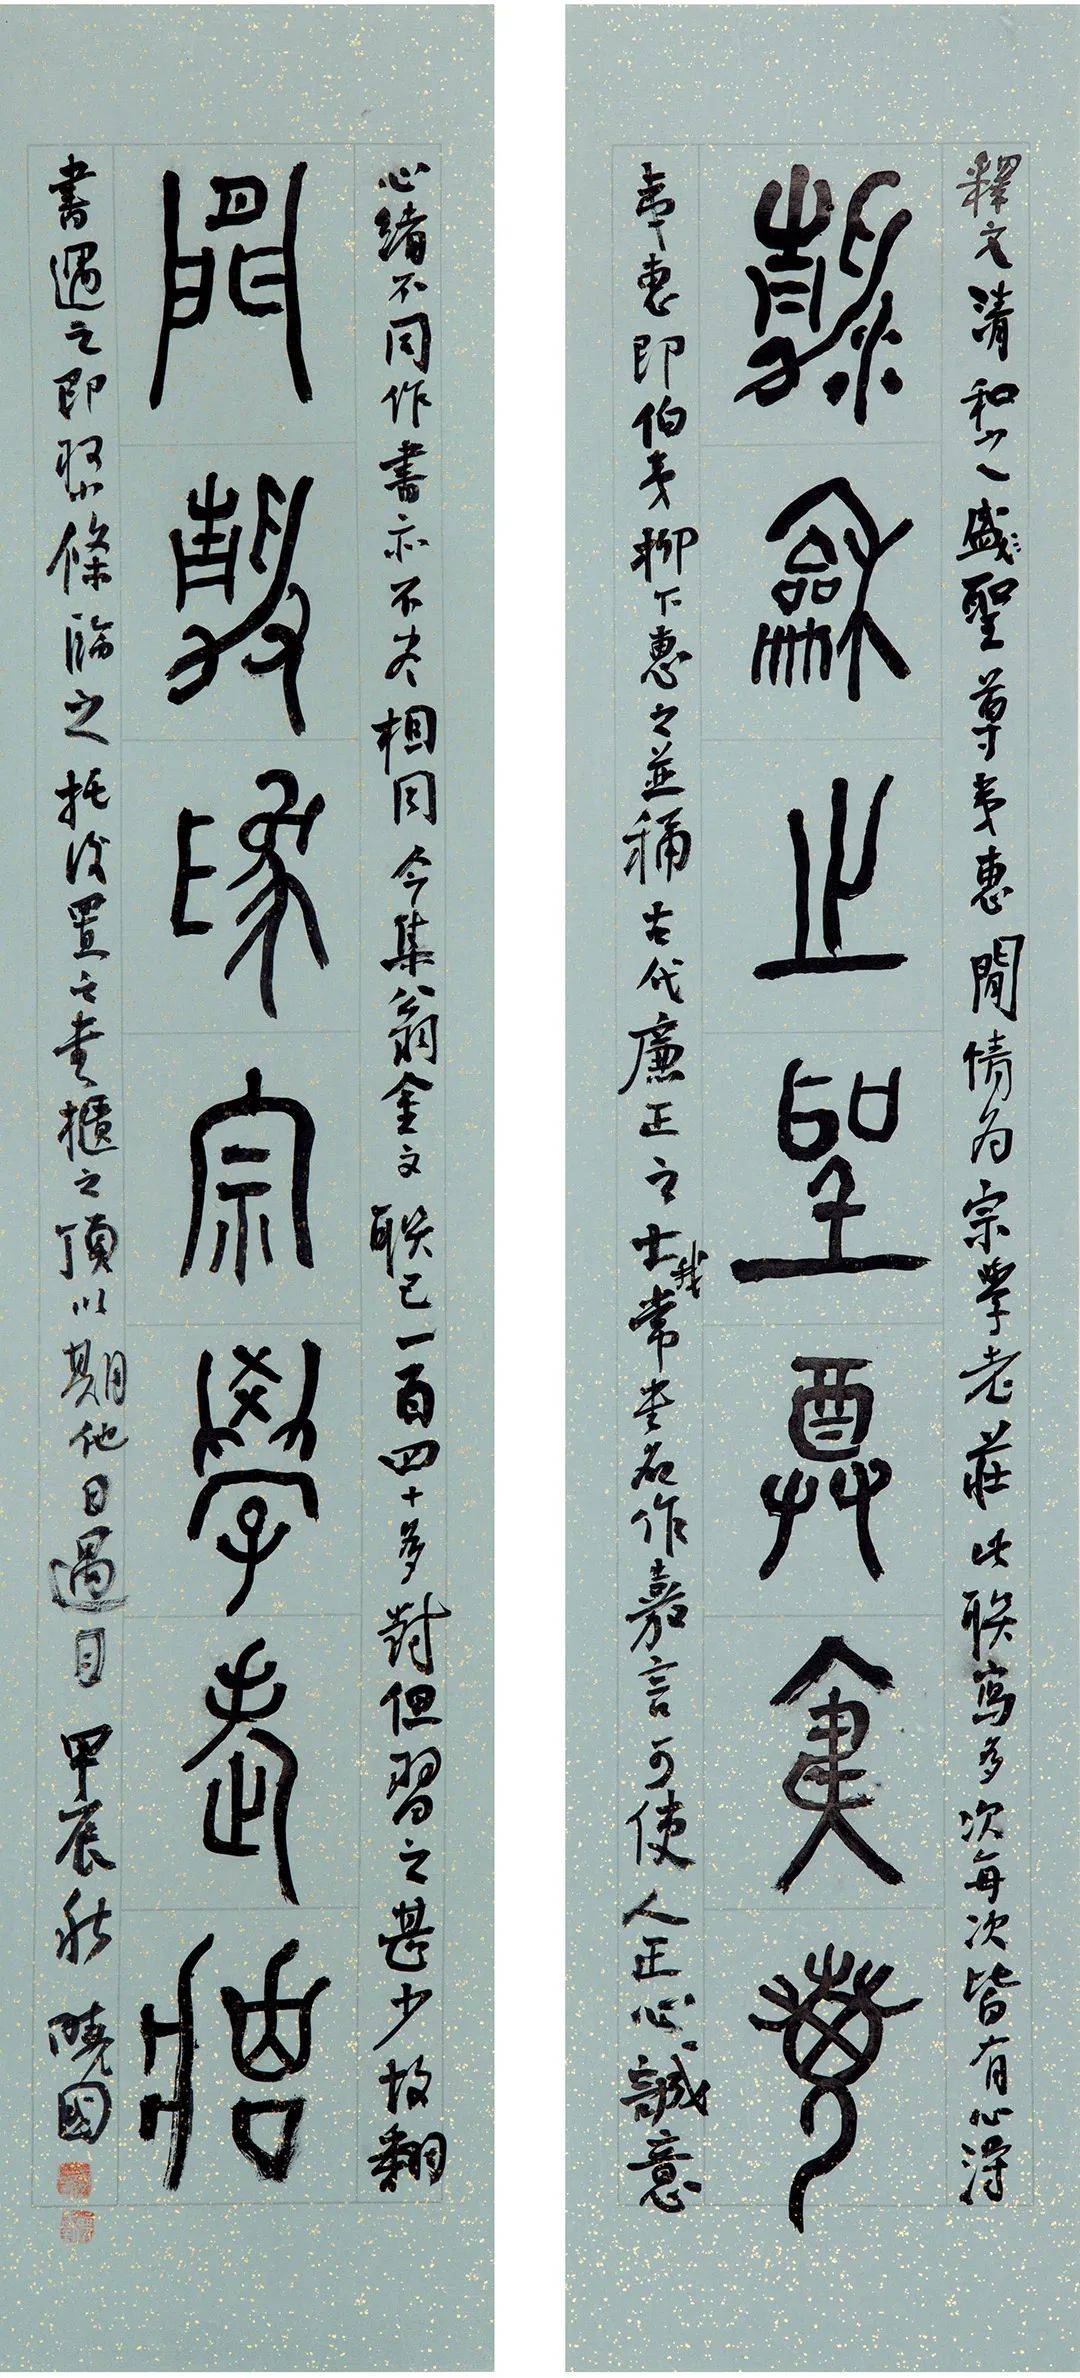 釋文清和之盛聖尊夷惠閒情为宗學老莊此聯寫多次每次皆有心得
瀞龢之聖尊夷惠
夷惠即伯夷柳下惠之並稱古代廉正之士我常书名作嘉言可使人正心誠意
心緒不同作書亦不尽相同今集翁金文聯已一百四十多對但習之甚少故翻
閒靜為宗學老莊
書遇之即取小條臨之托後置之书櫃之頂以期他日過目甲辰秋曉國